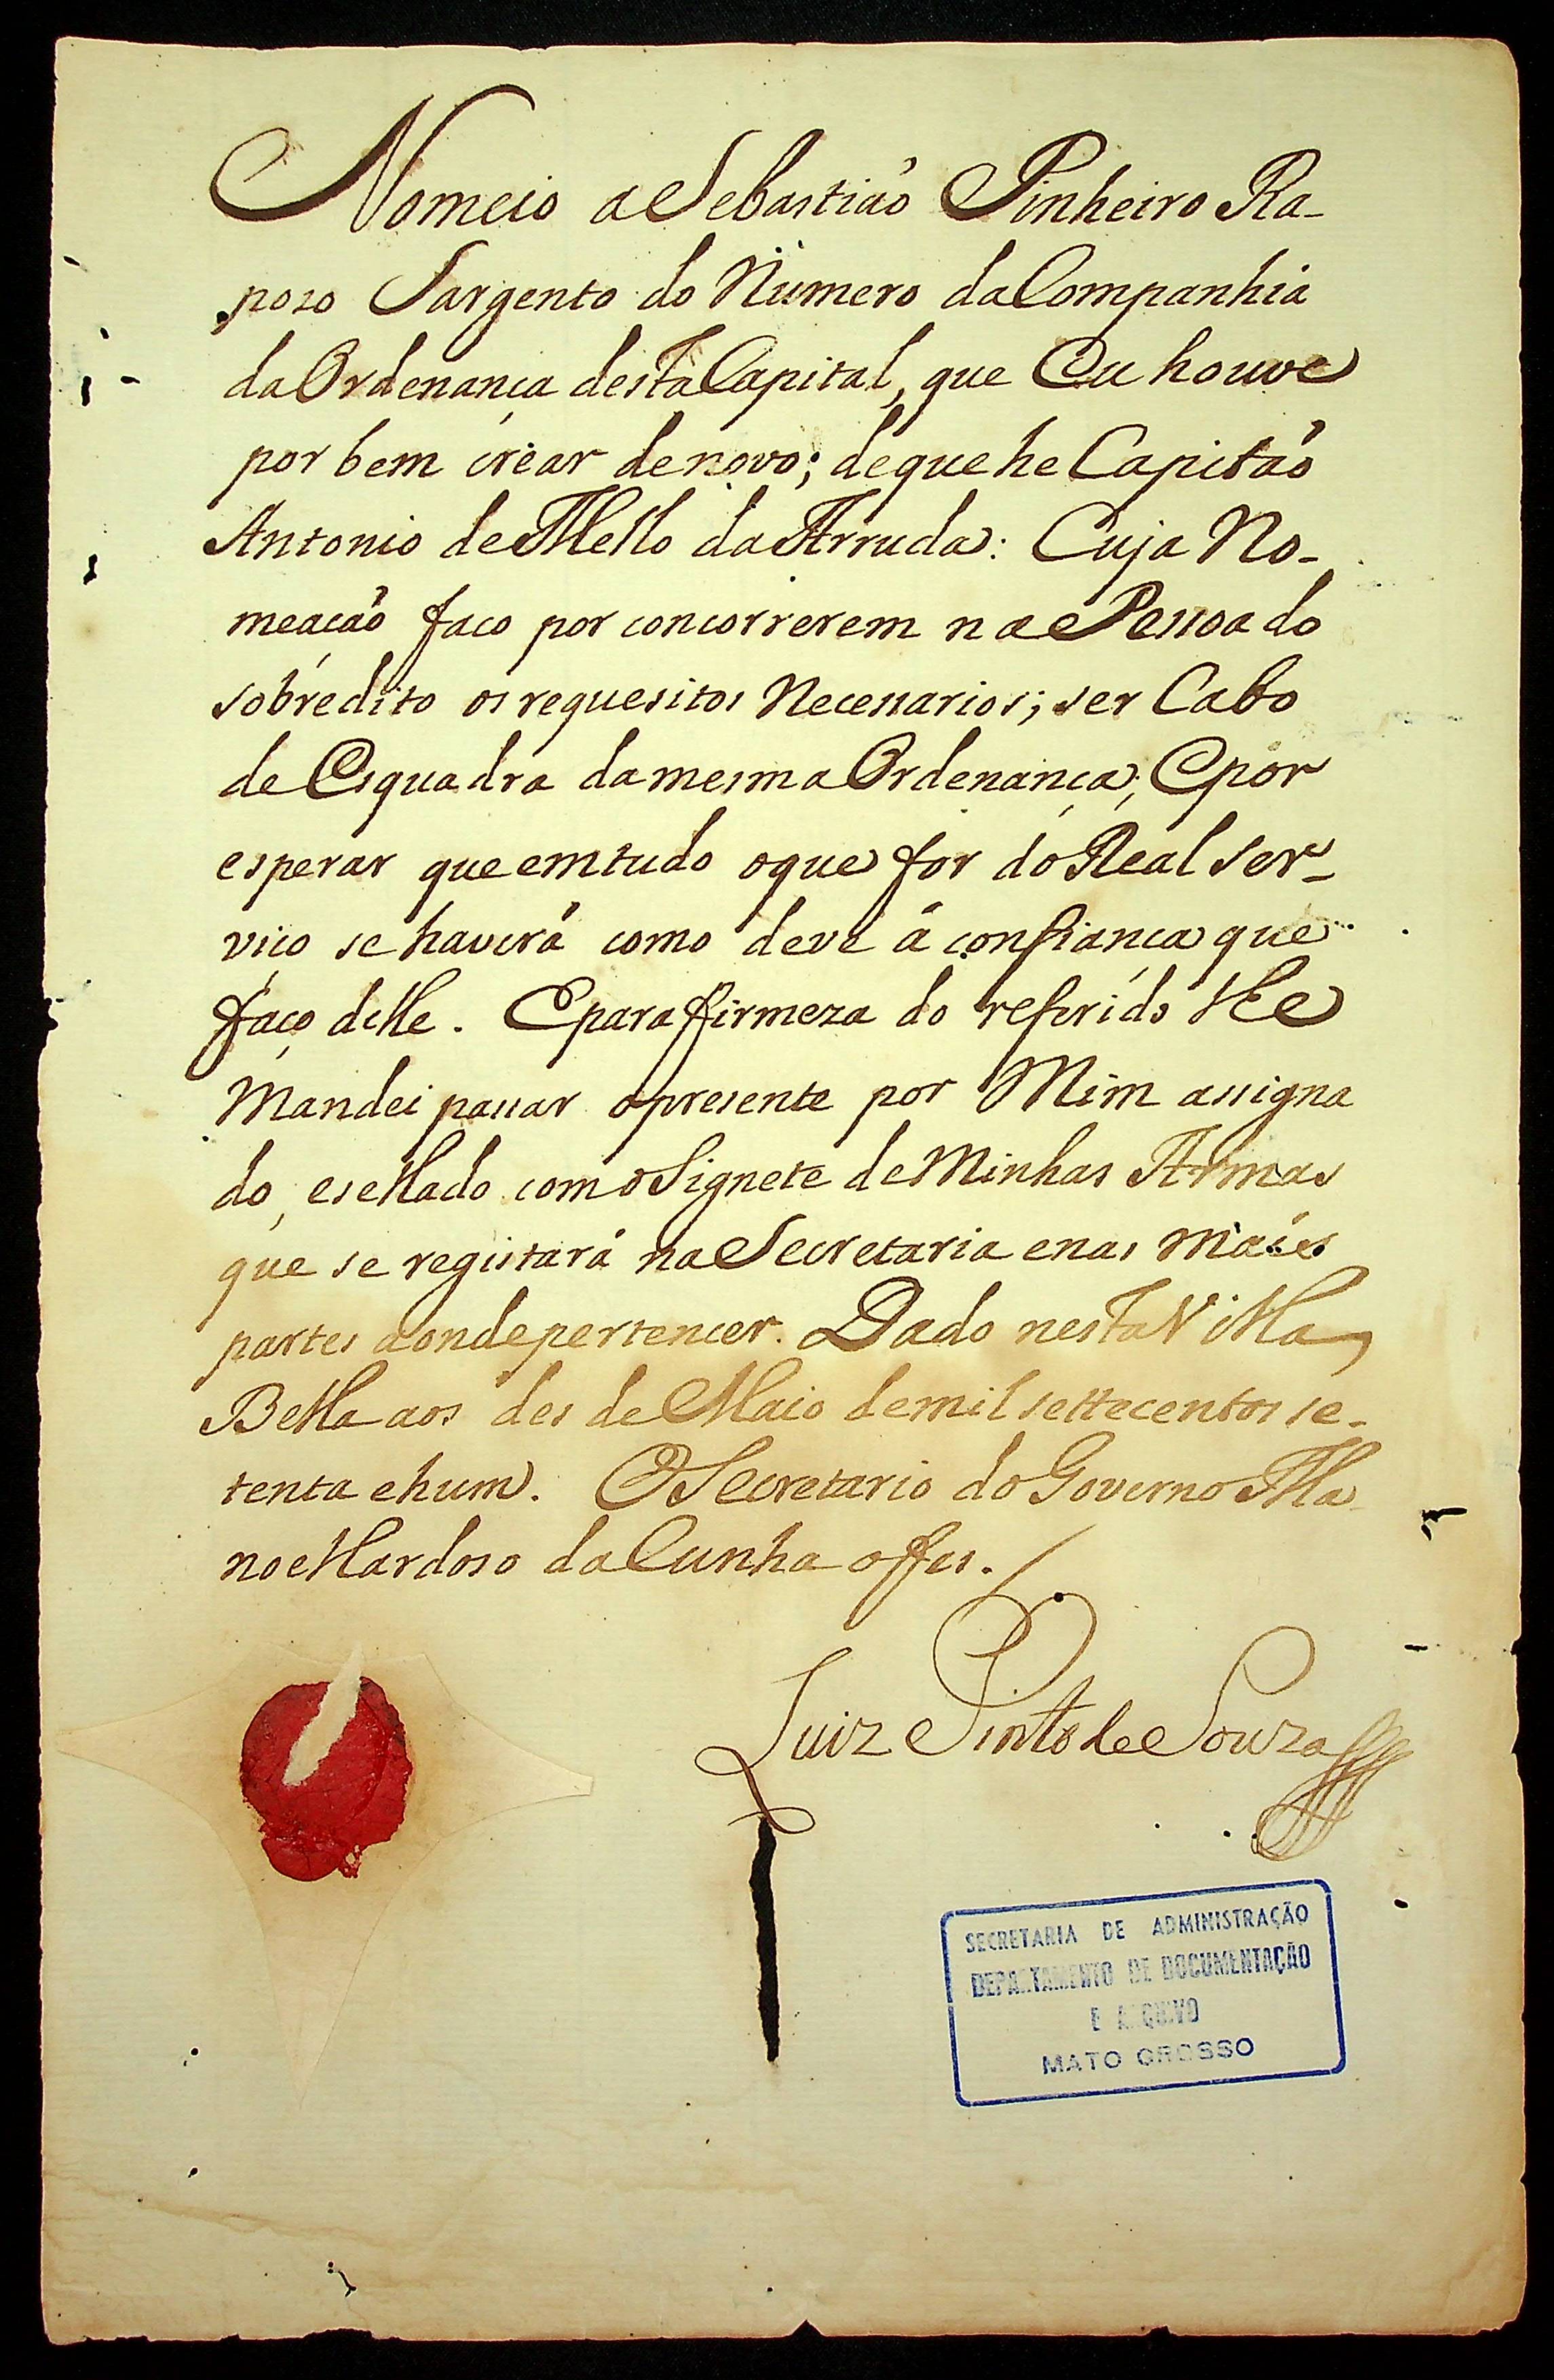 Nomeio a Sebastiaõ Pinheiro Ra-
pozo Sargento do Número da Companhia
da Ordenança desta Capital, que Eu houve
por bem crear de novo; de que he Capitaõ
Antonio de Mello da Arruda: Cuja No-
meaçaõ faço por concorrerem na Pessoa do
sobredito os requesitos Necessarios; ser Cabo
de Esquadra da mesma Ordenança; E por
esperar que em tudo o que for do Real Ser-
viço se haverá como deve á confiança que
faço delle. E para firmeza do referido lhe
Mandei passar o presente por Mim assigna
do, e sellado com o Signete de Minhas Armas
que se registará na Secretaria e nas mais
partes a onde pertencer. Dado nesta Villa
Bella aos des de Maio de mil settecentos se-
tenta e hum. O Secretario do Governo Ma
noel Cardoso da Cunha o fes.
Luiz Pinto de Souza
SECRETARIA DE ADMINISTRAÇÃO
DEPARTAMENTO DE DOCUMENTAÇÃO
E ARQUIVO
MATO GROSSO